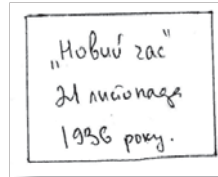 „Новий час"
21 листопада
1936 року.